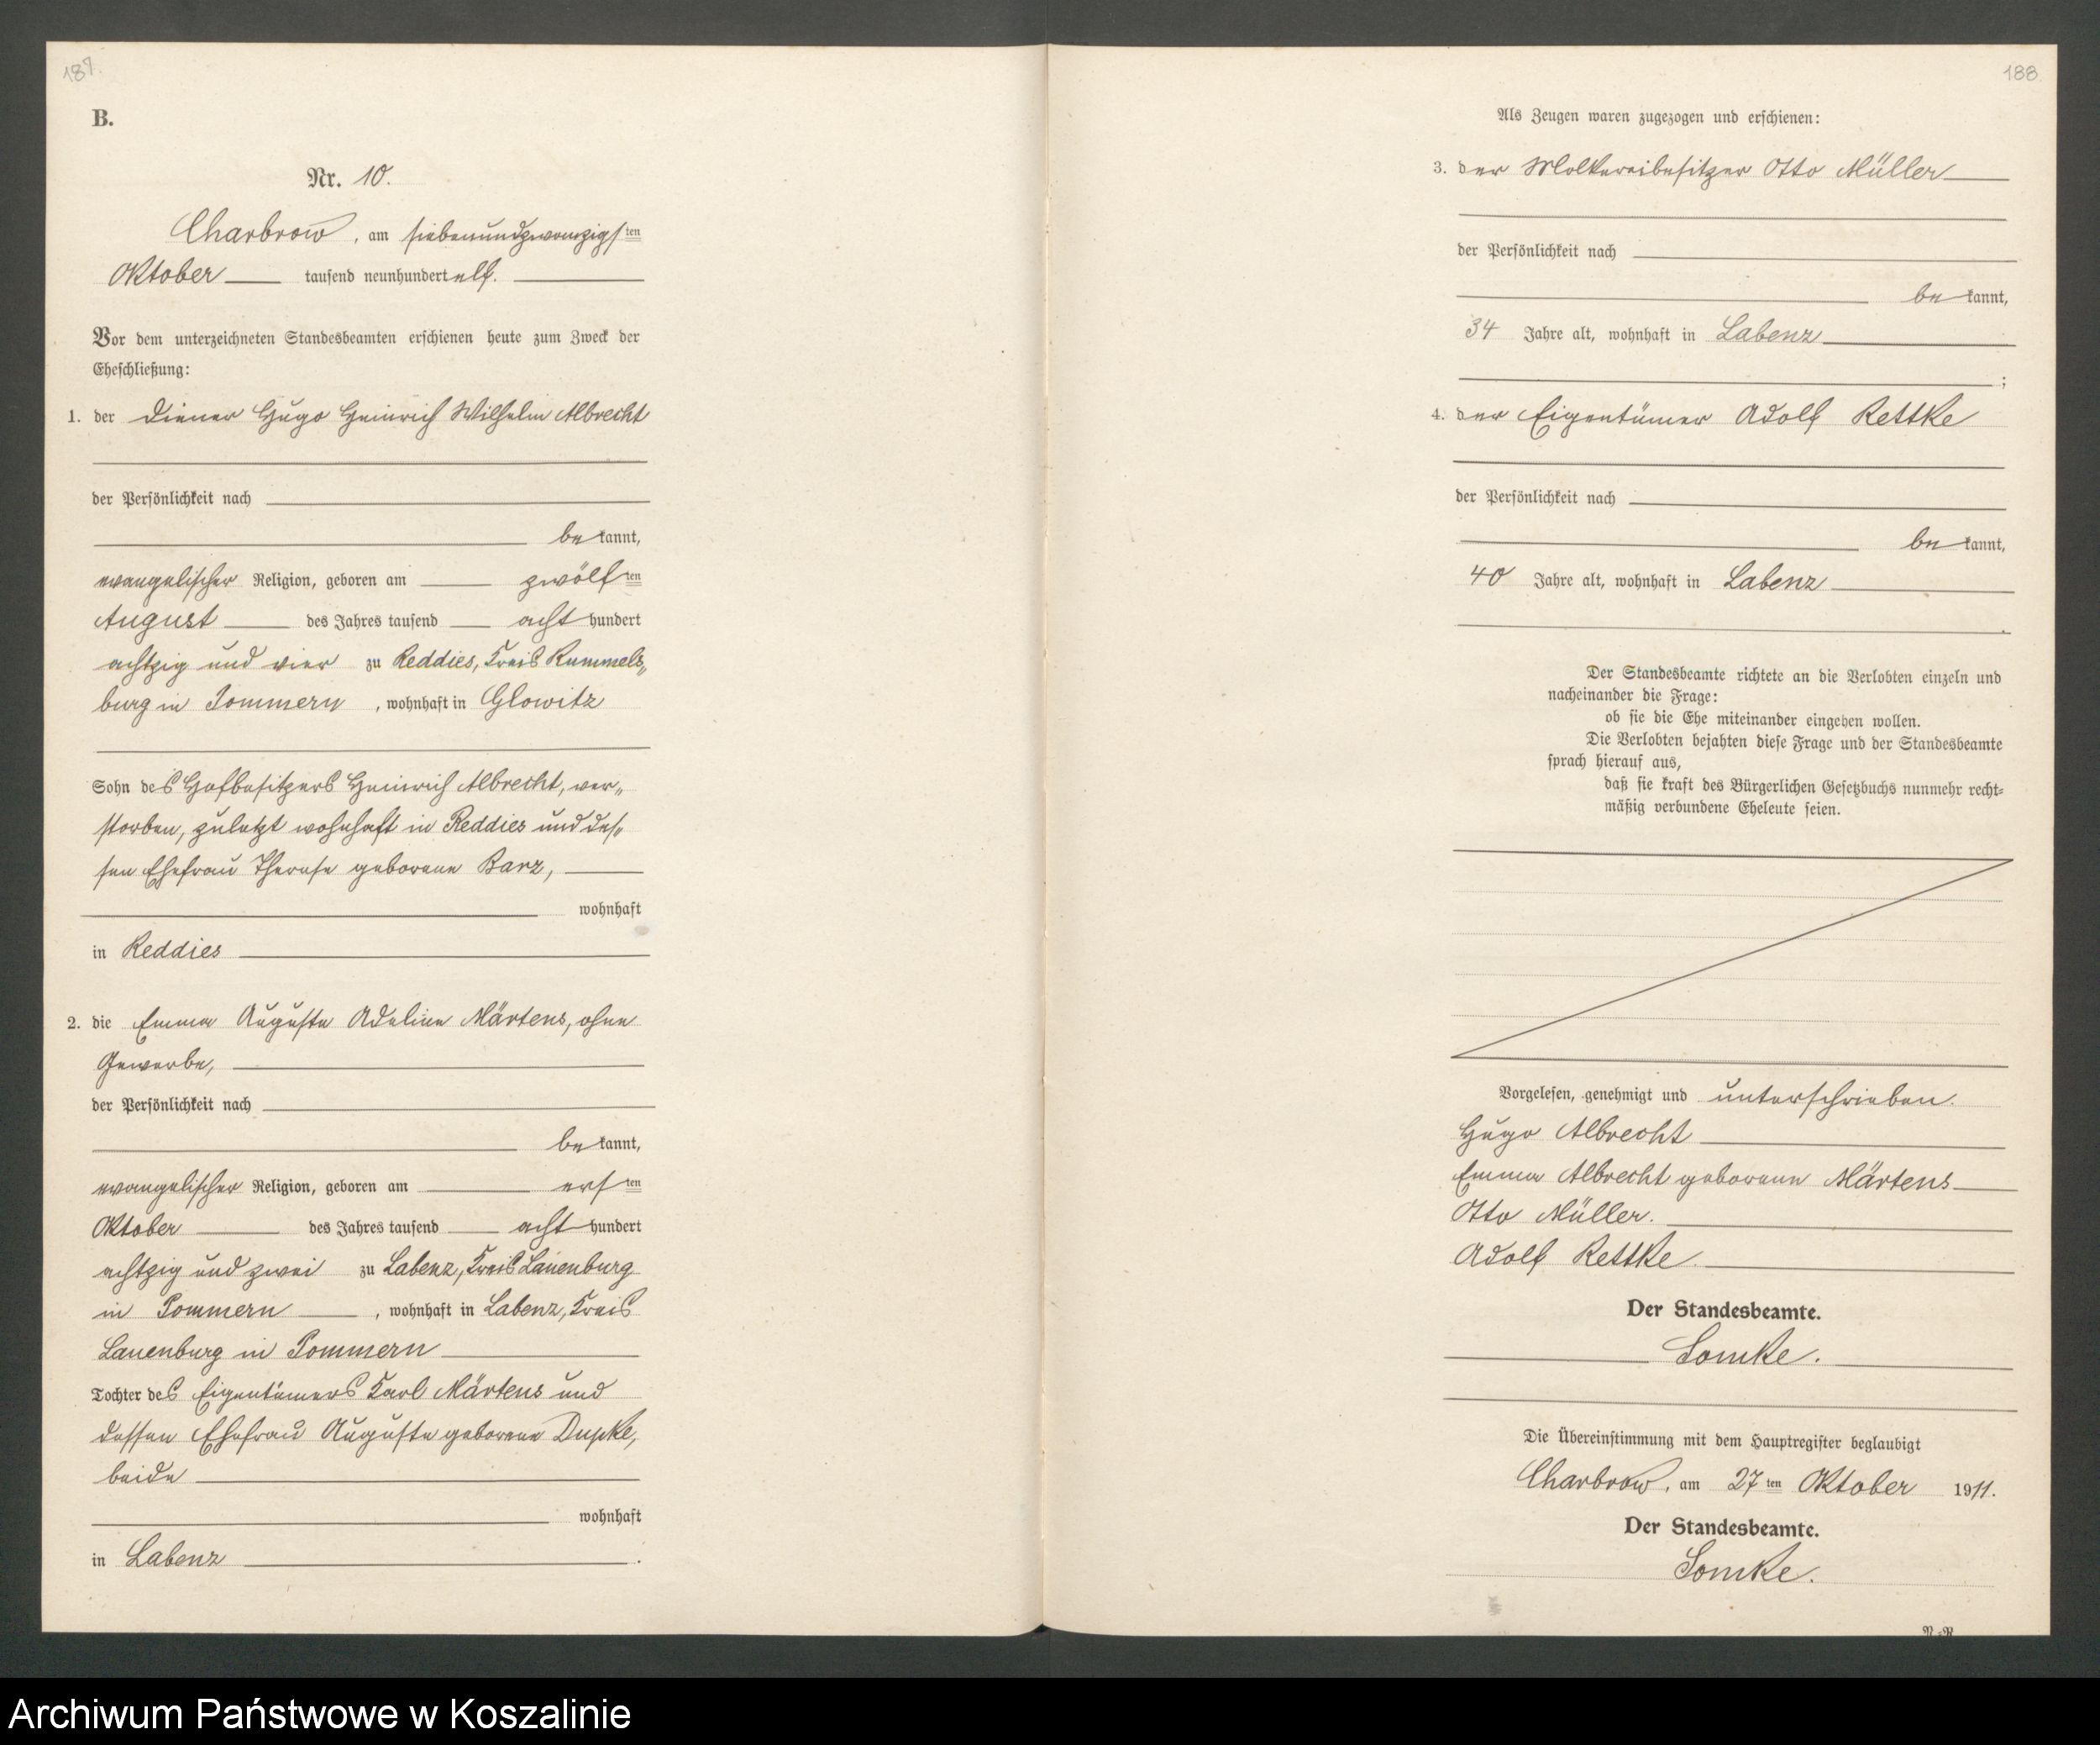 187.
B.
Nr. 10.
Charbrow, am siebenundzwanzigsten
Oktober tausend neunhundert elf.
Vor dem unterzeichneten Standesbeamten erschienen heute zum Zweck der
Eheschließung:
1. der Diener Hugo Heinrich Wilhelm Albrecht
der Persönlichkeit nach
be kannt,
evangelischer Religion, geboren am zwölften
August des Jahres tausend acht hundert
achtzig und vier zu Reddies, Kreis Rummels„
burg in Pommern, wohnhaft in Glowitz
Sohn des Hofbesitzers Heinrich Albrecht, ver„
storben, zuletzt wohnhaft in Reddies und des„
sen Ehefrau Therese geborene Barz,
wohnhaft
in Reddies
2. die Emma Auguste Adeline Märtens, ohne
Gewerbe,
der Persönlichkeit nach
be kannt,
evangelischer Religion, geboren am ersten
Oktober des Jahres tausend acht hundert
achtzig und zwei zu Labenz, Kreis Lauenburg
in Pommern, wohnhaft in Labenz, Kreis
Lauenburg in Pommern
Tochter des Eigentümers Karl Märtens und
dessen Ehefrau Auguste geborene Dupke,
beide
wohnhaft
in Labenz.
188
Als Zeugen waren zugezogen und erschienen:
3. der Molkereibesitzer Otto Müller
der Persönlichkeit nach
be kannt,
34 Jahre alt, wohnhaft in Labenz
;
4. der Eigentümer Adolf Rettke
der Persönlichkeit nach
be kannt,
40 Jahre alt, wohnhaft in Labenz
.
Der Standesbeamte richtete an die Verlobten einzeln und
nacheinander die Frage:
ob sie die Ehe miteinander eingehen wollen.
Die Verlobten bejahten diese Frage und der Standesbeamte
sprach hierauf aus,
daß sie kraft des Bürgerlichen Gesetzbuchs nunmehr recht-
mäßig verbundene Eheleute seien.
Vorgelesen, genehmigt und unterschrieben.
Hugo Albrecht
Emma Albrecht geborene Märtens
Otto Müller.
Adolf Rettke.
Der Standesbeamte.
Lomke.
Die Übereinstimmung mit dem Hauptregister beglaubigt
Charbrow, am 27ten Oktober 1911.
Der Standesbeamte.
Lomke.
Archiwum Państwowe w Koszalinie